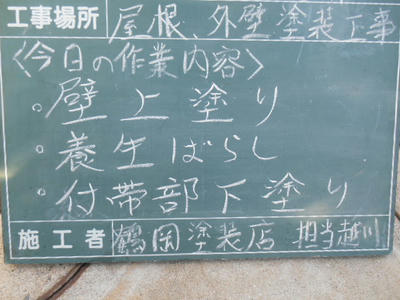 工事場所 屋根、外壁塗装工事
〈今日の作業内容〉
。壁上塗り
。養生ばらし
。付帯部下塗り
施工者 鶴岡塗装店 担当越川